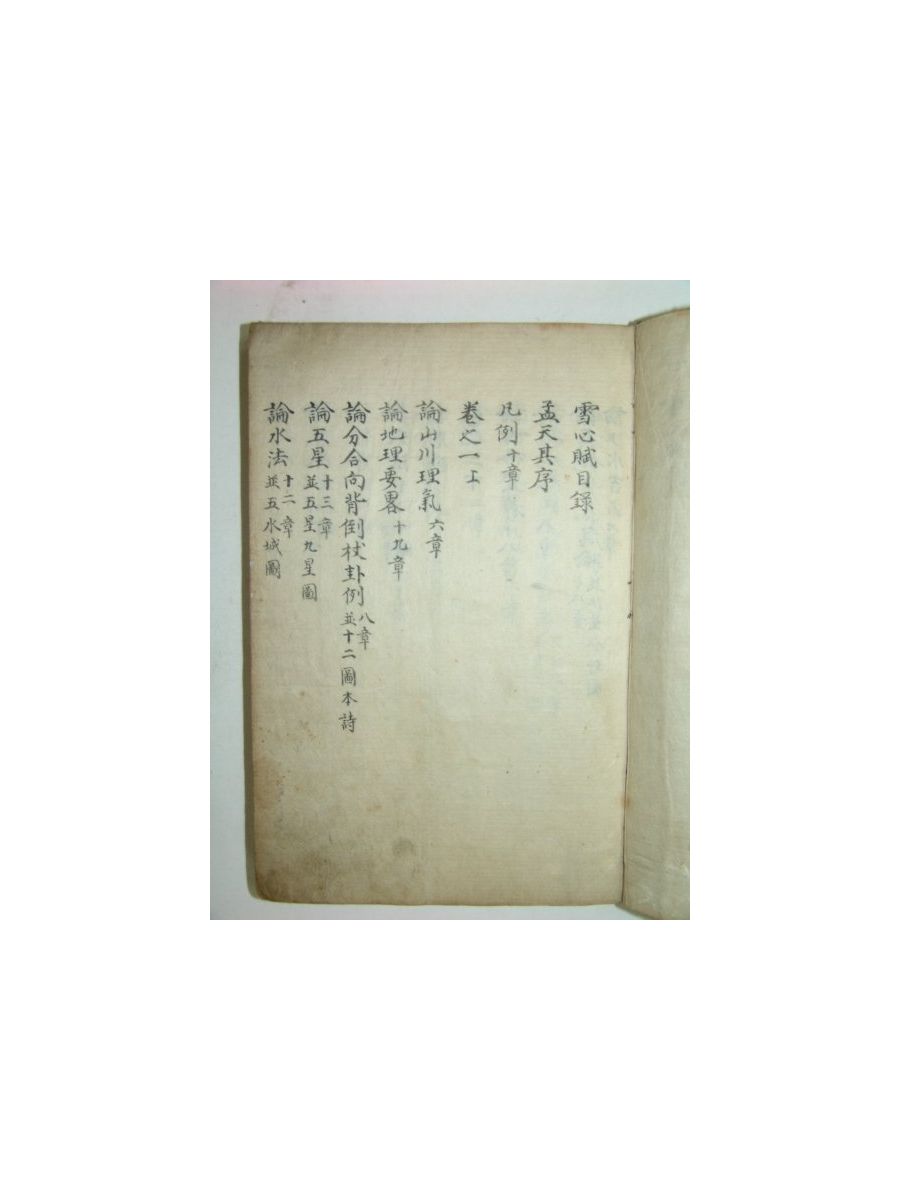 雪心賦目録
孟天其序
凡例十章
卷之一上
論山川理氣六章
論地理要畧十九章
論分合向背倒杖卦例八章並十二圖本詩
論五星十三章並五星九星圖
論水法十二章並五水城圖